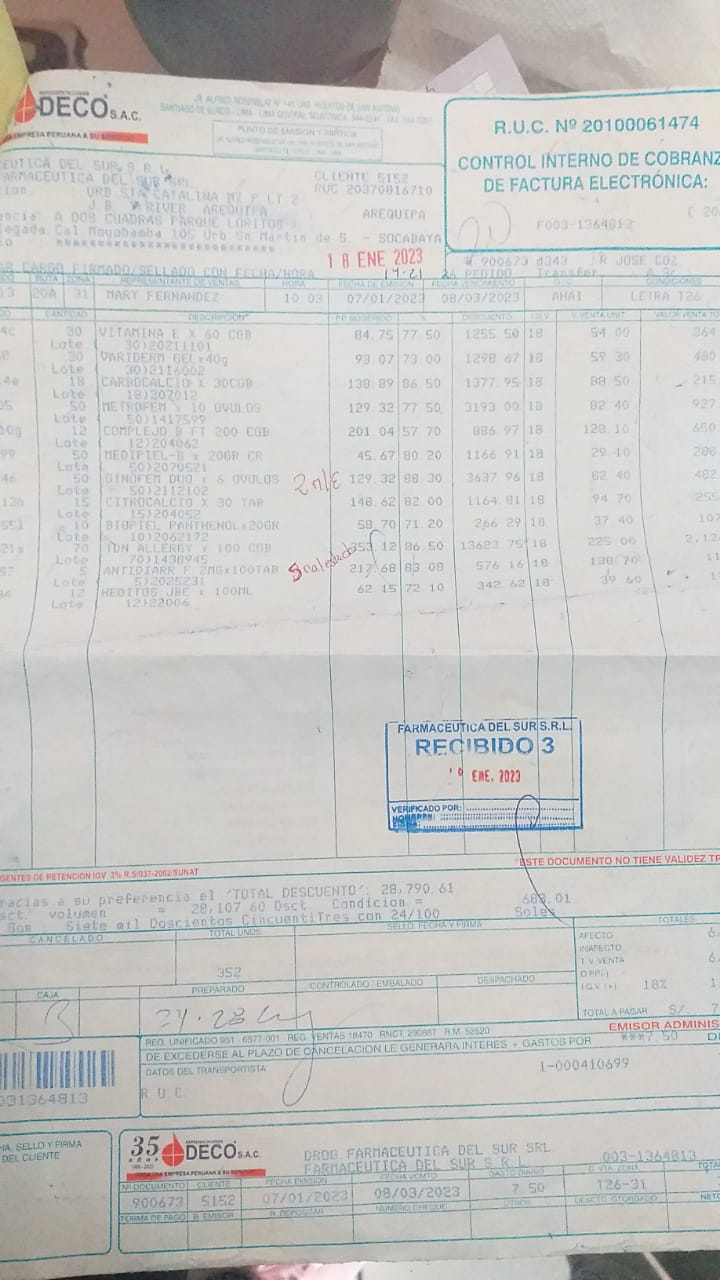 DECO S.A.C.
JR. ALFRED ROSENBLAT Nº 145 URB. HUERTOS DE SAN ANTONIO
SANTIAGO DE SURCO - LIMA - LIMA
PUNTO DE EMISIÓN Y PARTIDA
EMPRESA PERUANA A SU
R.U.C. Nº 20100061474
CONTROL INTERNO DE COBRANZ
DE FACTURA ELECTRÓNICA:
F003-1364813
CEUTICA DEL SUR S R L
FARMACEUTICA DEL SUR SRL
CLIENTE 5152
RUC 20370016710
URB STA CATALINA MZ P LT 2
J B Y RIVER AREQUIPA
AREQUIPA
encia A DOS CUADRAS PARQUE LORITOS
legada Cal Moyobamba 105 Urb Sn Martin de S. - SOCABAYA
18 ENE 2023
14:21
AR CARGO FIRMADO/SELLADO CON FECHA/HORA
26 PEDIDO Transfer
# 900673 d343 R JOSE COZ
RUTA ZONA REPRESENTANTE DE VENTAS HORA FECHA DE EMISIÓN FECHA VENCIMIENTO CONDICIONES
13 20A 31 MARY FERNANDEZ 10 03 07/01/2023 08/03/2023 AMA1 LETRA T26
CANTIDAD DESCRIPCIÓN P.P. SUGERIDO % DESCUENTO I.G.V. V. VENTA UNIT. VALOR VENTA TO
30 VITAMINA E X 60 CGB 84.75 77 50 1255 50 18 54 00 364
Lote 30)20211101
30 VARIDERM GELx40g 93.07 73 00 1298 67 18 59 30 480
Lote 30)2116002
18 CARBOCALCIO X 30CGB 138 89 86 50 1377 95 18 88 50 215
Lote 18)207012
50 METROFEM x 10 OVULOS 129.32 77 50 3193 00 18 82 40 927
Lote 50)1417599
12 COMPLEJO B FT 200 CGB 201 04 57 70 886 97 18 128 10 650
Lote 12)204062
50 MEDIPIEL-B x 20GR CR 45.67 80 20 1166 91 18 29 10 288
Lote 50)2070521
50 GINOFEM DUO x 6 OVULOS 129.32 88 30 3637 96 18 82 40 482
Lote 50)2112102
15 CITROCALCIO X 30 TAB 148.62 82 00 1164 81 18 94 70 255
Lote 15)204052
10 BIOPIEL PANTHENOLx20GR 58 70 71 20 266 29 18 37 40 107
Lote 10)2062172
70 TDN ALLERGY x 100 CGB 353 12 86 50 13623 75 18 225 00
Lote 70)1438945
5 ANTIDIARR F 2MGx100TAB 217 68 83 08 576 16 18 138 70
Lote 5)2025231
12 HEDITOS JBE x 100ML 62 15 72 10 342 62 18 39 60
Lote 12)22006
FARMACEUTICA DEL SUR S.R.L.
RECIBIDO 3
ENE, 2023
VERIFICADO POR:
GENTES DE RETENCION IGV 3% R.S/037-2002/SUNAT
"ESTE DOCUMENTO NO TIENE VALIDEZ TR
racias a su preferencia el 'TOTAL DESCUENTO': 28,790 61
sct. volumen = 28,107 60 Dsct. Condicion = 683.01
Son Siete mil Doscientos CincuentiTres con 24/100 Soles
CANCELADO
TOTAL UNDS
SELLO, FECHA Y FIRMA
TOTALES
AFECTO
INAFECTO
T. V. VENTA
D.P.P.(-)
I.G.V. (+) 18%
TOTAL A PAGAR S/. 7
352
PREPARADO
CONTROLADO / EMBALADO
DESPACHADO
CAJA
EMISOR ADMINIS
***7.50
REG. UNIFICADO 951 - 6577-001 REG VENTAS 18470 RNCT 290887 R.M. 52520
DE EXCEDERSE AL PLAZO DE CANCELACION LE GENERARA INTERES + GASTOS POR
DATOS DEL TRANSPORTISTA
1-000410699
R U C
031364813
HA, SELLO Y FIRMA
DEL CLIENTE
35 años
DECO S.A.C.
DROG FARMACEUTICA DEL SUR SRL
FARMACEUTICA DEL SUR S R L
003-1364813
Nº DOCUMENTO CLIENTE FECHA EMISIÓN FECHA VCMTO GASTO DIARIO C. VTA. ZONA
900673 5152 07/01/2023 08/03/2023 7 50 T26-31
FORMA DE PAGO B. EMISOR B. DEPOSITAR NUMERO CHEQUE OTROS DESCTO OTORGADO NETO